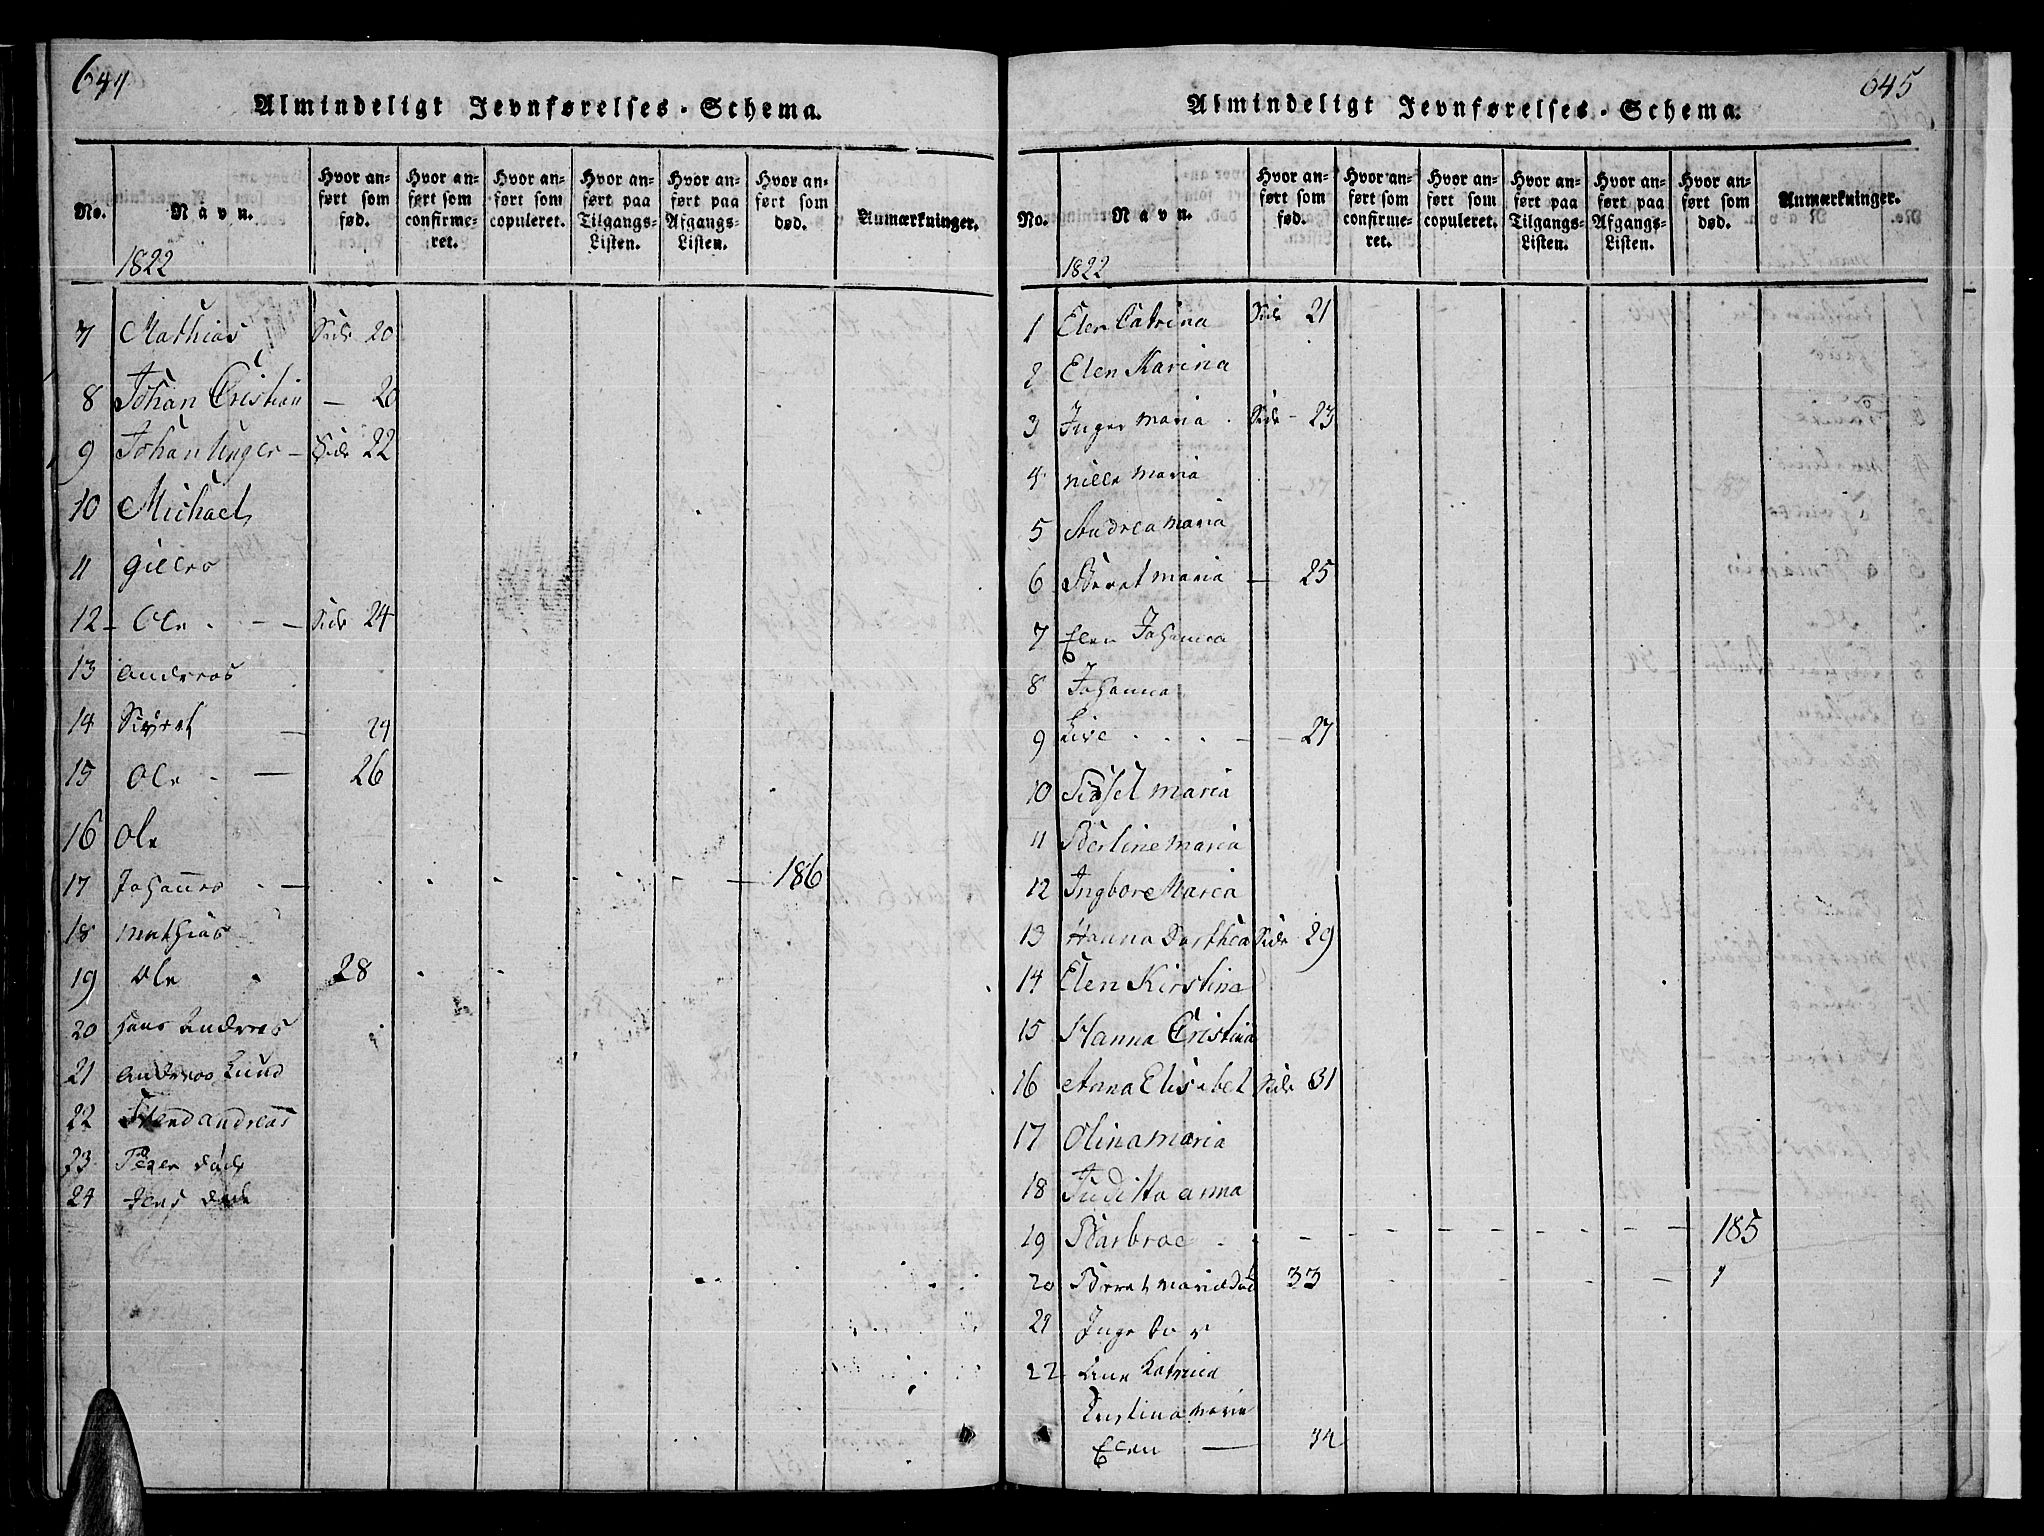 644
Almindeligt Jevnførelses-Schema.
No.
Navn.
Hvor anført som fød.
Hvor anført som confirmeret.
Hvor anført som copuleret.
Hvor anført paa Tilgangs-Listen.
Hvor anført paa Afgangs-Listen.
Hvor anført som død.
Anmærkninger.
1822
7 Mathias Side 20
8 Johan Cristian — 20
9 Johan Unger — Side 22
10 Michael
11
12 Ole — Side 24
13 Andreas
14 Sivert — 24
15 Ole — 26
16 Ole
17 Johannes — 186
18 Mathias
19 Ole 28
20 Hans Andreas
21 Andreas Lund
22 Andreas
23 Peder
24 Jens
645
Almindeligt Jevnførelses-Schema.
No.
Navn.
Hvor anført som fød.
Hvor anført som confirmeret.
Hvor anført som copuleret.
Hvor anført paa Tilgangs-Listen.
Hvor anført paa Afgangs-Listen.
Hvor anført som død.
Anmærkninger.
1822
1 Elen Catrina Side 21
2 Elen Karina
3 Inger Maria Side 23
4 Nille Maria
5 Andrea Maria
6 Beret Maria — 25
7 Elen Johanna
8 Johanna
9 Live — 27
10 Sidsel Maria
11 Berline Maria
12 Ingbor Maria
13 Hanna Dorthea Side 29
14 Elen Kirstina
15 Hanna Cristina
16 Anna Elisabet Side 31
17 Olina Maria
18 Juditta Anna
19 Barbroe — 185
20 Beret Maria 33
21 Ingebor
22 Ane Katrina
Kristina Marie
Elen — 34